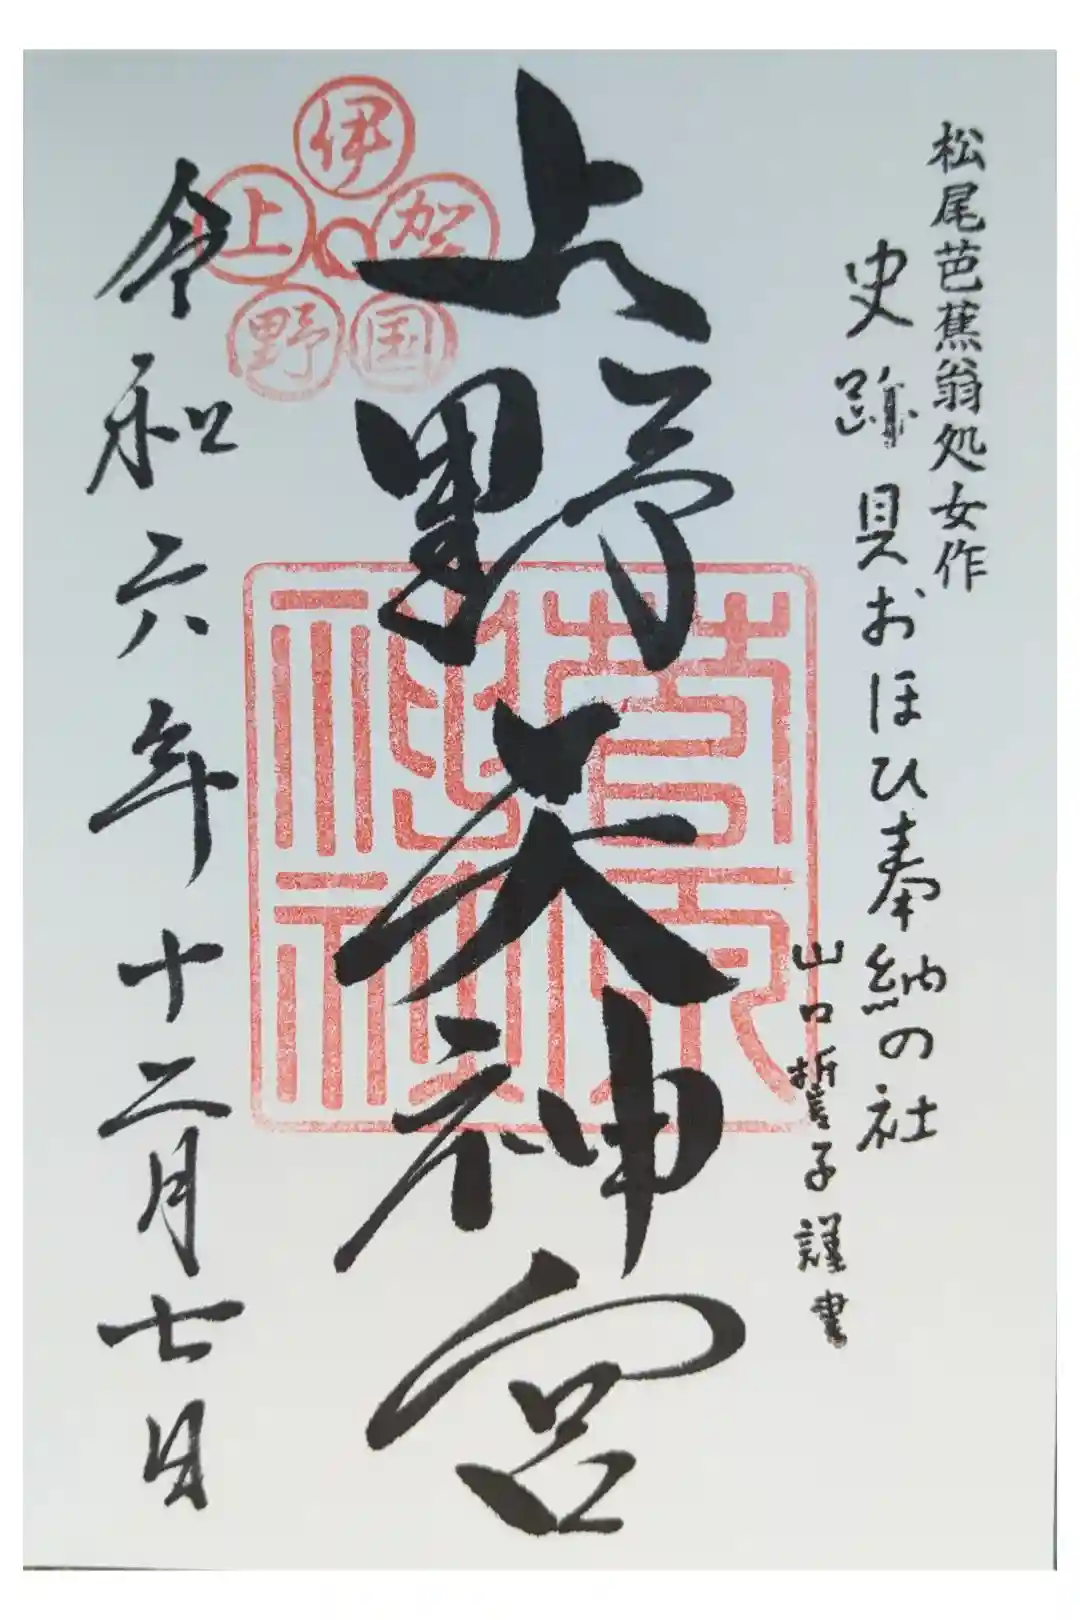 松尾芭蕉翁処女作
史跡貝おほひ奉納の社
山口誓子謹書
上野天神宮
令和六年十二月七日
伊賀国上野
菅原神社